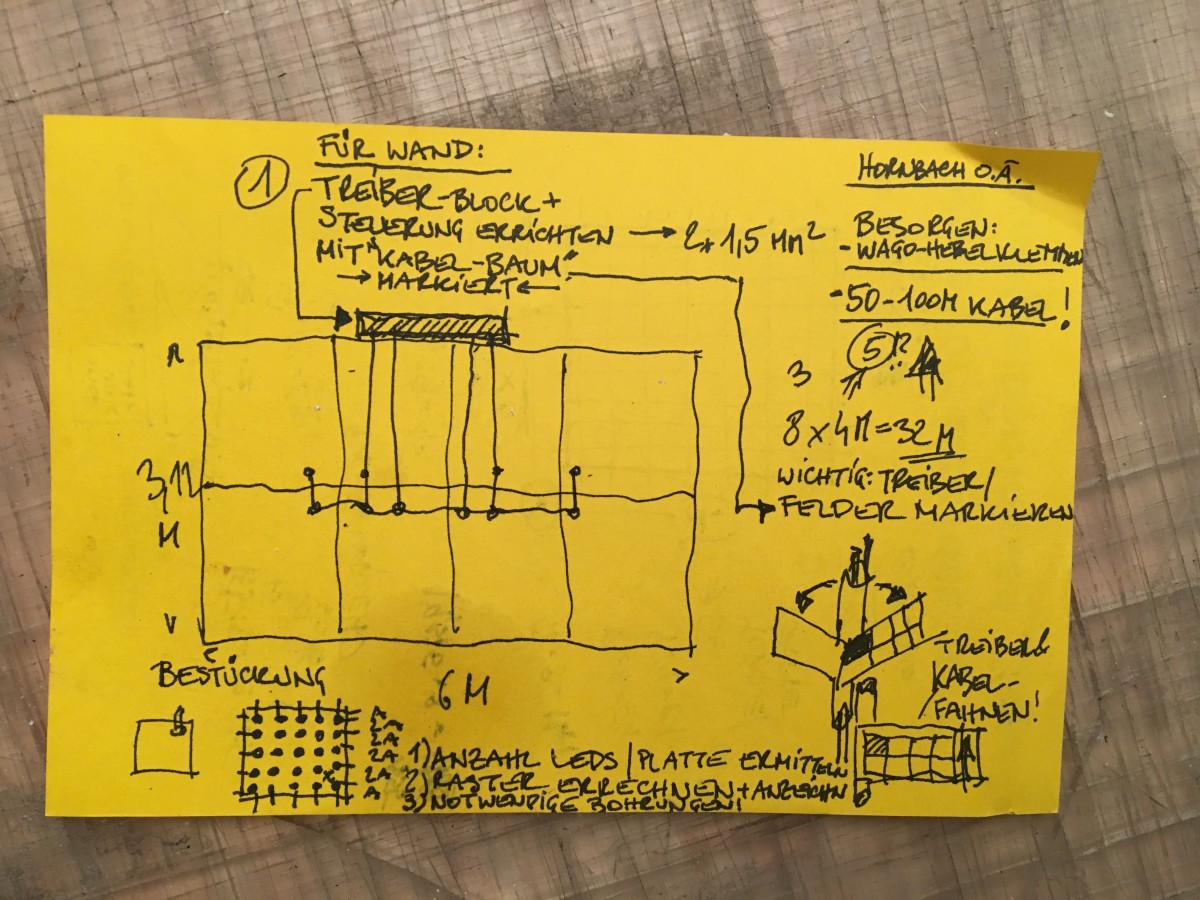 1
FÜR WAND:
TREIBER-BLOCK +
STEUERUNG ERRICHTEN → 2 x 1,5 MM²
MIT "KABEL-BAUM"
→ MARKIERT ←
HORNBACH O.Ä.
BESORGEN:
- WAGO-HEBELKLEMMEN
- 50-100M KABEL!
3 5 !?
8 x 4M = 32M
WICHTIG: TREIBER/
FELDER MARKIEREN
3,11
M
6 M
TREIBER&
KABEL-
FAHNEN!
BESTÜCKUNG
A
2A
2A
2A
2A
A
1) ANZAHL LEDS / PLATTE ERMITTELN
2) RASTER ERRECHNEN + ANZEICHN
3) NOTWENDIGE BOHRUNGEN!